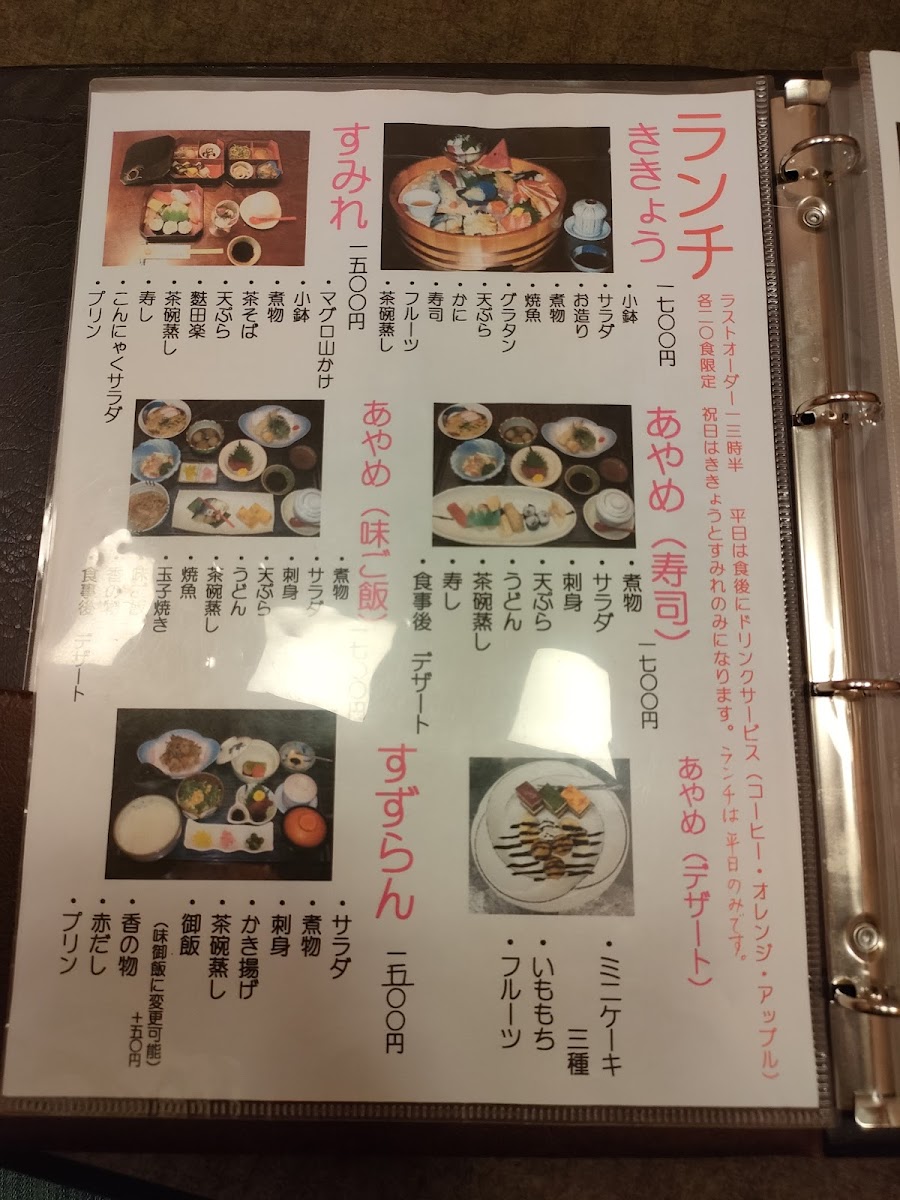 ランチ
ラストオーダー一三時半　平日は食後にドリンクサービス（コーヒー・オレンジ・アップル）
各二〇食限定　祝日はききょうとすみれのみになります。ランチは平日のみです。
ききょう
一七〇〇円
・小鉢
・サラダ
・お造り
・煮物
・焼魚
・グラタン
・天ぷら
・かに
・寿司
・フルーツ
・茶碗蒸し
すみれ
一五〇〇円
・マグロ山かけ
・小鉢
・煮物
・茶そば
・天ぷら
・麩田楽
・茶碗蒸し
・寿し
・こんにゃくサラダ
・プリン
あやめ（寿司）
一七〇〇円
・煮物
・サラダ
・刺身
・天ぷら
・うどん
・茶碗蒸し
・寿し
・食事後　デザート
あやめ（味ご飯）
一七〇〇円
・煮物
・サラダ
・刺身
・天ぷら
・うどん
・茶碗蒸し
・焼魚
・玉子焼き
・香の物
・食事後　デザート
あやめ（デザート）
・ミニケーキ
三種
・いももち
・フルーツ
すずらん
一五〇〇円
・サラダ
・煮物
・刺身
・かき揚げ
・茶碗蒸し
・御飯
（味御飯に変更可能）
＋五〇円
・香の物
・赤だし
・プリン